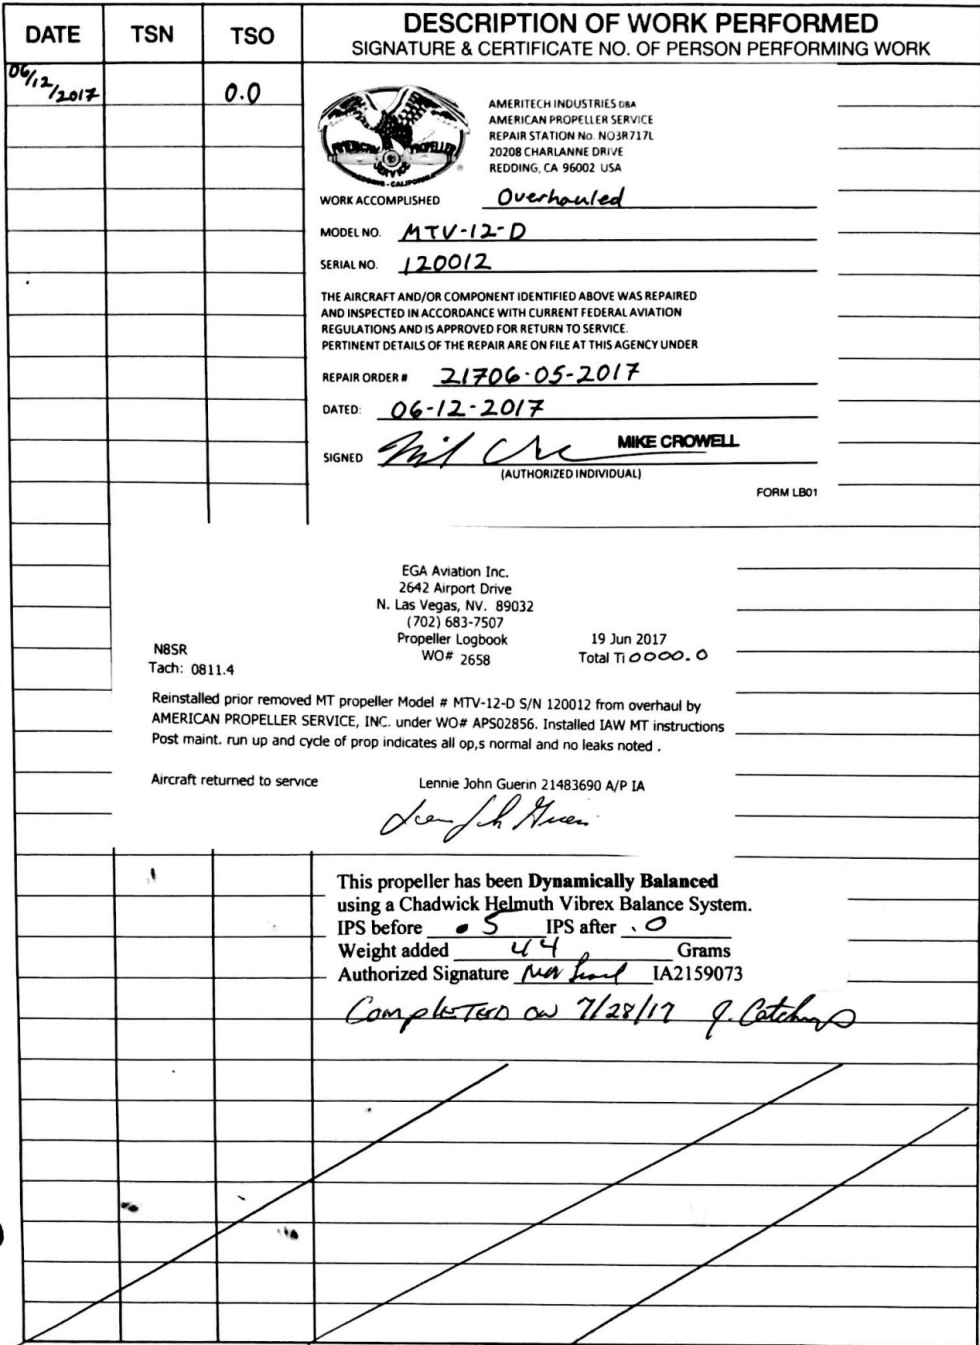 DATE TSN TSO DESCRIPTION OF WORK PERFORMED
SIGNATURE & CERTIFICATE NO. OF PERSON PERFORMING WORK
06/12/2017 0.0
AMERICAN PROPELLER
SERVICE
REDDING - CALIFORNIA
AMERITECH INDUSTRIES DBA
AMERICAN PROPELLER SERVICE
REPAIR STATION No. NO3R717L
20208 CHARLANNE DRIVE
REDDING, CA 96002 USA
WORK ACCOMPLISHED Overhauled
MODEL NO. MTV-12-D
SERIAL NO. 120012
THE AIRCRAFT AND/OR COMPONENT IDENTIFIED ABOVE WAS REPAIRED
AND INSPECTED IN ACCORDANCE WITH CURRENT FEDERAL AVIATION
REGULATIONS AND IS APPROVED FOR RETURN TO SERVICE.
PERTINENT DETAILS OF THE REPAIR ARE ON FILE AT THIS AGENCY UNDER
REPAIR ORDER # 21706-05-2017
DATED: 06-12-2017
SIGNED MIKE CROWELL
(AUTHORIZED INDIVIDUAL)
FORM LB01
EGA Aviation Inc.
2642 Airport Drive
N. Las Vegas, NV. 89032
(702) 683-7507
Propeller Logbook 19 Jun 2017
N8SR WO# 2658 Total Ti 0000.0
Tach: 0811.4
Reinstalled prior removed MT propeller Model # MTV-12-D S/N 120012 from overhaul by
AMERICAN PROPELLER SERVICE, INC. under WO# APS02856. Installed IAW MT instructions
Post maint. run up and cycle of prop indicates all op,s normal and no leaks noted .
Aircraft returned to service Lennie John Guerin 21483690 A/P IA
This propeller has been Dynamically Balanced
using a Chadwick Helmuth Vibrex Balance System.
IPS before .5 IPS after .0
Weight added 44 Grams
Authorized Signature IA2159073
COMPLETED ON 7/28/17 J. Catchings